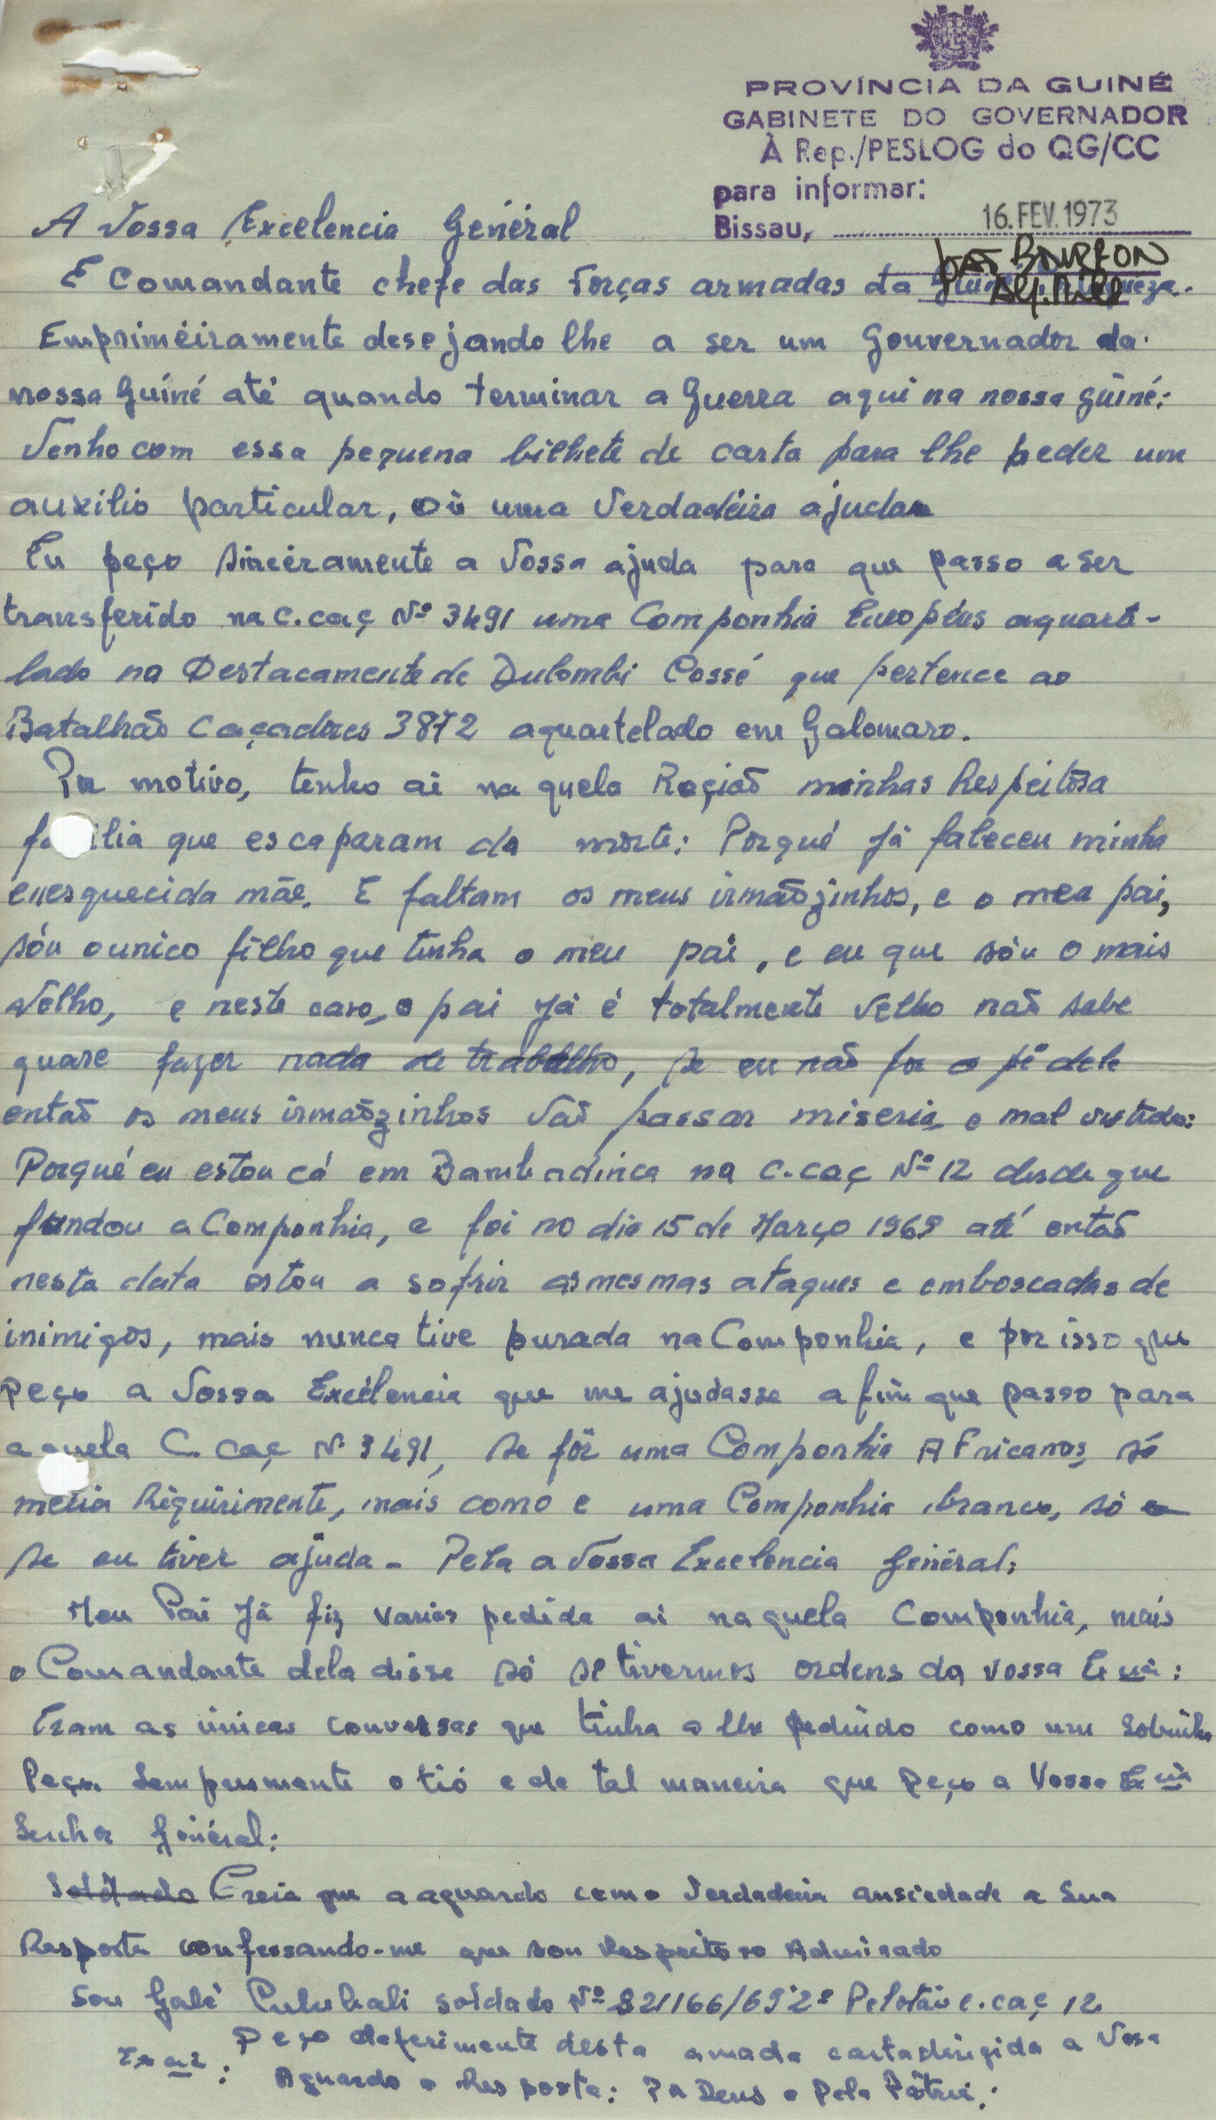 PROVÍNCIA DA GUINÉ
GABINETE DO GOVERNADOR
À Rep./PESLOG do QG/CC
para informar:
Bissau, 16. FEV. 1973
A Vossa Excelencia Genéral
E Comandante chefe das Forças armadas da
Emprimeiramente desejando lhe a ser um Gouvernador da
nossa Guiné até quando terminar a Guerra aqui na nossa guiné:
Venho com essa pequena bilhete de carta para lhe peder um
auxilio particular, oú uma Verdadéira ajuda
Eu peço sincéramente a Vossa ajuda para que passo a ser
transferido na C.caç Nº 3491 uma Componhia Européus aquarte-
lado no Destacamente de Dulombi Cossé que pertence ao
Batalhão Caçadores 3872 aquartelado em Galomaro.
Por motivo, tenho ai na quela Região minhas Respeitosa
fa ilia que escaparam da morte: Porqué Já faleceu minha
enesquecida mãe. E faltam os meus irmãozinhos, e o meu pai,
sóu o unico filho que tinha o meu pai, e eu que sóu o mais
velho, e neste caso, o pai Já é totalmente velho não sabe
quase fazer nada de trabalho, se eu não for o pé dele
então os meus irmãozinhos vão passar miseria e mal vestidos:
Porqué eu estou cá em Bambadinca na C.caç Nº 12 desde que
fundou a Componhia, e foi no dia 15 de Março 1969 até então
nesta data estou a sofrir asmesmas ataques e emboscadas de
inimigos, mais nunca tive purada na Componhia, e por isso que
peço a Vossa Excélencia que me ajudasse afim que passo para
a quela C. caç Nº 3491, se fôr uma Componhia Africanas, só
metia Riquirimente, mais como e uma Componhia branco, só
se eu tiver ajuda - Pela a Vossa Excelencia Genéral:
Meu Pai Já fiz varias pedida ai na quela Componhia, mais
o Comandante dela disse só se tivermos ordens da vossa Exª:
Eram as únicas conversas que tinha a lhe pedindo como um Sobrinho
Peço Sempremente o tió e de tal maneira que peço a Vossa Excia
Senhor Genéral:
Soldado Creia que a aguardo como Verdadeira ansiedade a Sua
Resposta confessando-me que sou Respeitoso Admirado
Sou Galé soldado Nº 821166/69 2º Pelotão C.caç 12
Peço deferimente desta amada cartadirigida a Vosa
Exª:
Aguardo o Resposta: Pr Deus e Pela Pátria: